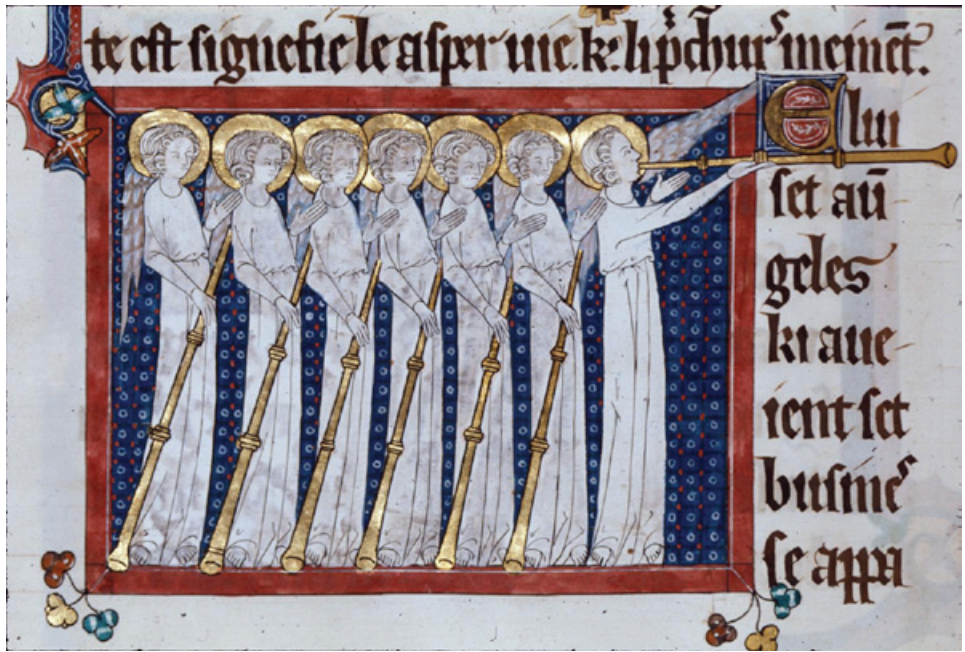 te est signefie le asper vie. k. li p̄cħur̉ meinēt.
E lui
set aū
geles
ki ave-
ient set
busineˢ
se appa